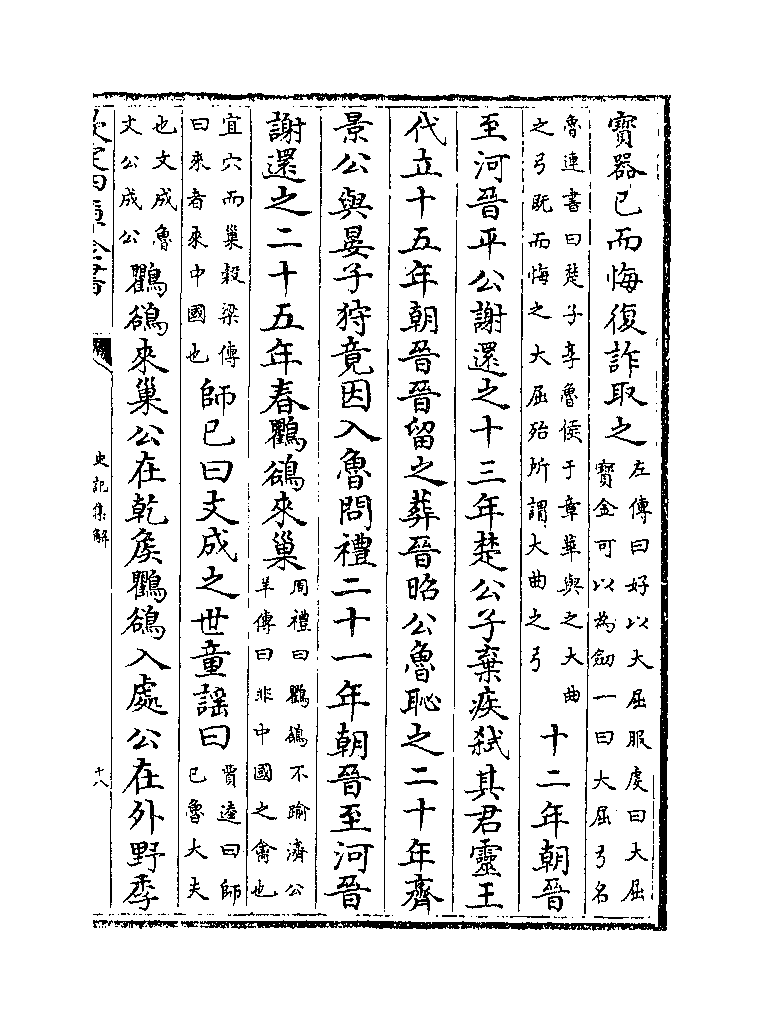 寳器已而悔復詐取之左傳曰好以大屈服虔曰大屈寳金可以為劒一曰大屈弓名
魯連書曰楚子享魯侯于章華與之大曲之弓既而悔之大屈殆所謂大曲之弓十二年朝晉
至河晉平公謝還之十三年楚公子棄疾弑其君靈王
代立十五年朝晉晉留之葬晉昭公魯恥之二十年齊
景公與晏子狩竟因入魯問禮二十一年朝晉至河晉
謝還之二十五年春鸜鵒來巢周禮曰鸜鵒不踰濟公羊傳曰非中國之禽也
宜穴而巢榖梁傳曰來者來中國也師已曰文成之世童謡曰賈逵曰師已魯大夫
也文成魯文公成公鸜鵒來巢公在乾侯鸜鵒入處公在外野季
欽定四庫全書
史記集解
十八